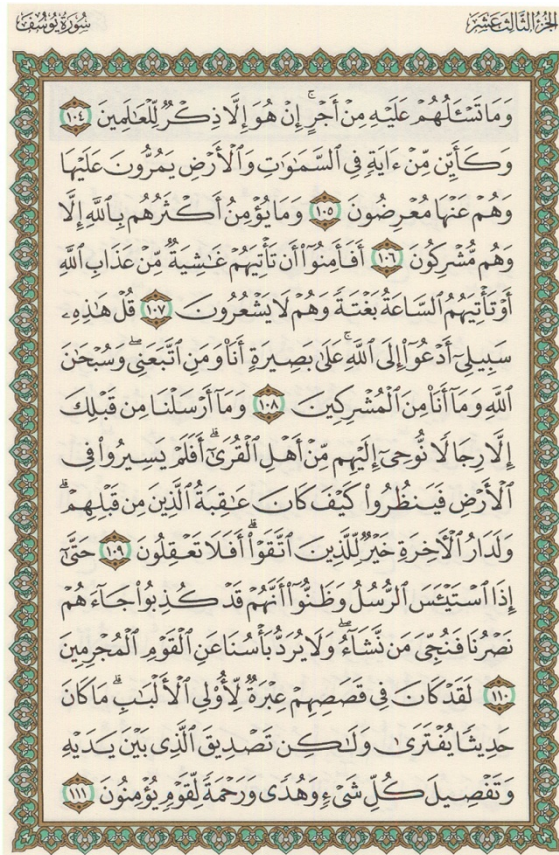 الجزء الثالث عشر
سورة يوسف
وَمَا تَسْـَٔلُهُمْ عَلَيْهِ مِنْ أَجْرٍ ۚ إِنْ هُوَ إِلَّا ذِكْرٌ لِّلْعَـٰلَمِينَ ١٠٤
وَكَأَيِّن مِّنْ ءَايَةٍ فِى ٱلسَّمَـٰوَٰتِ وَٱلْأَرْضِ يَمُرُّونَ عَلَيْهَا
وَهُمْ عَنْهَا مُعْرِضُونَ ١٠٥ وَمَا يُؤْمِنُ أَكْثَرُهُم بِٱللَّهِ إِلَّا
وَهُم مُّشْرِكُونَ ١٠٦ أَفَأَمِنُوٓا۟ أَن تَأْتِيَهُمْ غَـٰشِيَةٌ مِّنْ عَذَابِ ٱللَّهِ
أَوْ تَأْتِيَهُمُ ٱلسَّاعَةُ بَغْتَةً وَهُمْ لَا يَشْعُرُونَ ١٠٧ قُلْ هَـٰذِهِۦ
سَبِيلِىٓ أَدْعُوٓا۟ إِلَى ٱللَّهِ ۚ عَلَىٰ بَصِيرَةٍ أَنَا۠ وَمَنِ ٱتَّبَعَنِى ۖ وَسُبْحَـٰنَ
ٱللَّهِ وَمَآ أَنَا۠ مِنَ ٱلْمُشْرِكِينَ ١٠٨ وَمَآ أَرْسَلْنَا مِن قَبْلِكَ
إِلَّا رِجَالًا نُّوحِىٓ إِلَيْهِم مِّنْ أَهْلِ ٱلْقُرَىٰٓ ۗ أَفَلَمْ يَسِيرُوا۟ فِى
ٱلْأَرْضِ فَيَنظُرُوا۟ كَيْفَ كَانَ عَـٰقِبَةُ ٱلَّذِينَ مِن قَبْلِهِمْ ۗ
وَلَدَارُ ٱلْـَٔاخِرَةِ خَيْرٌ لِّلَّذِينَ ٱتَّقَوْا۟ ۗ أَفَلَا تَعْقِلُونَ ١٠٩ حَتَّىٰٓ
إِذَا ٱسْتَيْـَٔسَ ٱلرُّسُلُ وَظَنُّوٓا۟ أَنَّهُمْ قَدْ كُذِبُوا۟ جَآءَهُمْ
نَصْرُنَا فَنُجِّىَ مَن نَّشَآءُ ۖ وَلَا يُرَدُّ بَأْسُنَا عَنِ ٱلْقَوْمِ ٱلْمُجْرِمِينَ
١١٠ لَقَدْ كَانَ فِى قَصَصِهِمْ عِبْرَةٌ لِّأُو۟لِى ٱلْأَلْبَـٰبِ ۗ مَا كَانَ
حَدِيثًا يُفْتَرَىٰ وَلَـٰكِن تَصْدِيقَ ٱلَّذِى بَيْنَ يَدَيْهِ
وَتَفْصِيلَ كُلِّ شَىْءٍ وَهُدًى وَرَحْمَةً لِّقَوْمٍ يُؤْمِنُونَ ١١١